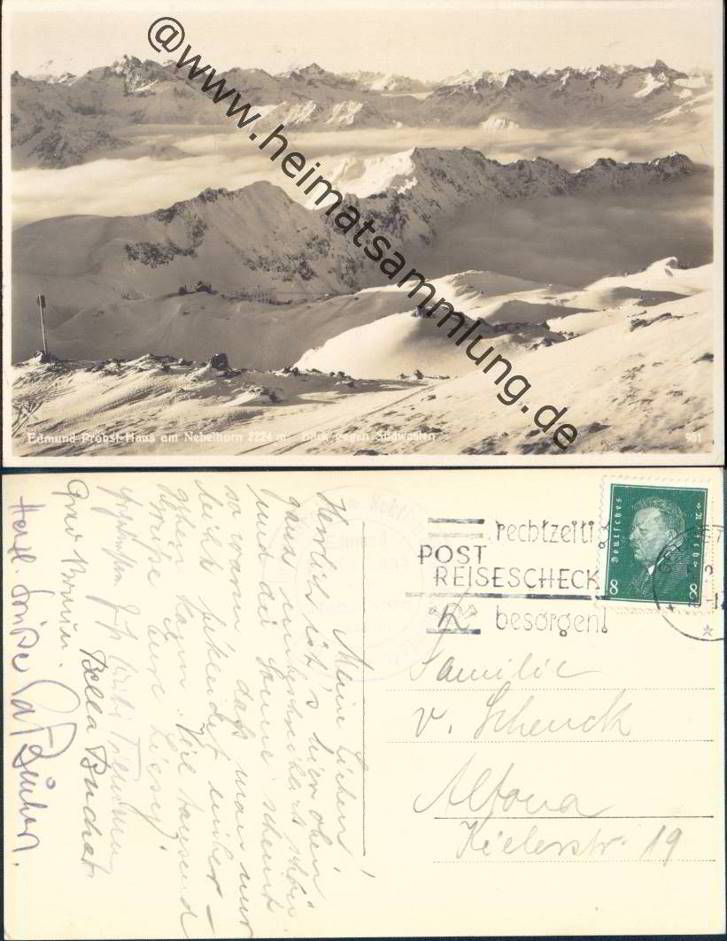 @www.heimatsammlung.de
Edmund-Probst-Haus am Nebelhorn 2224 m Blick gegen Südwesten 901
rechtzeitig
POST
REISESCHECK
besorgen!
Deutsches Reich
8 8
Familie
v. Schenck
Altona
Kielerstr. 19
Meine Lieben!
Herrlich ist's hier oben,
ganz unbeschreiblich schön.
und die Sonne scheint
so warm daß man nur
leicht bekleidet umher-
gehen kann. Viel tausend
Grüße Eure Liesy.
Bella Buchat
Herzl. Grüße